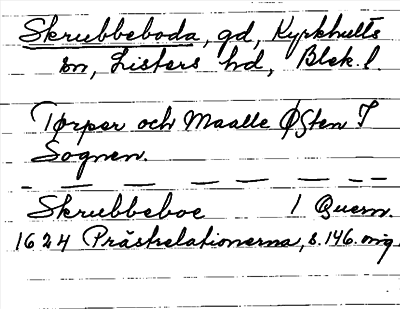 Skrubbeboda, gd, Kyrkhults
sn, Listers hd, Blek. l.
Tørper och Maalle Østen I
Sognen.
Skrubbeboe 1 Quern.
1624 Prästrelationerna, s. 146. mig